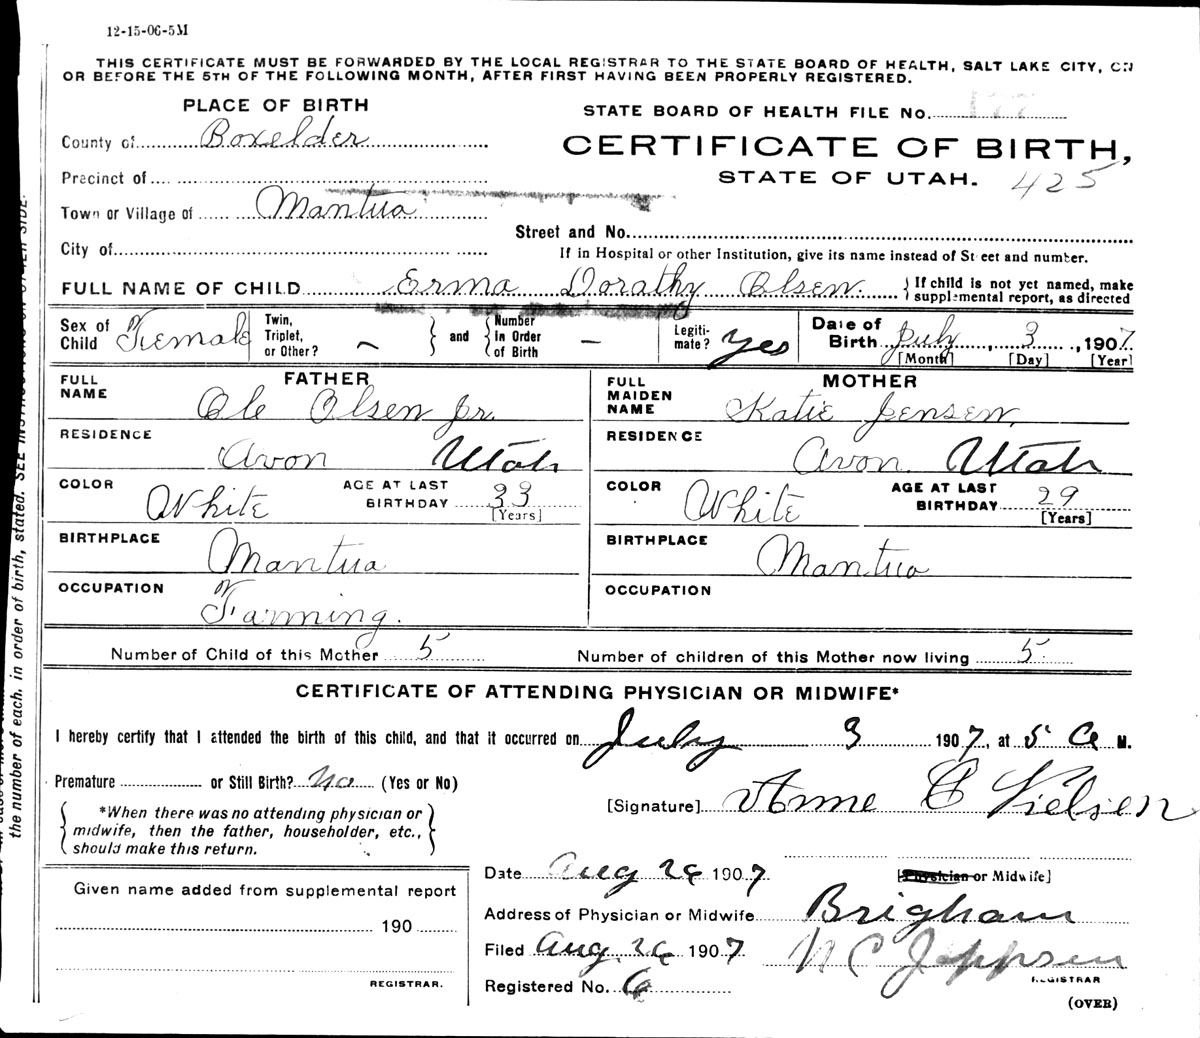 12-15-06-5M
THIS CERTIFICATE MUST BE FORWARDED BY THE LOCAL REGISTRAR TO THE STATE BOARD OF HEALTH, SALT LAKE CITY, ON
OR BEFORE THE 5TH OF THE FOLLOWING MONTH, AFTER FIRST HAVING BEEN PROPERLY REGISTERED.
PLACE OF BIRTH
County of Boxelder
Precinct of
Town or Village of Mantua
City of
STATE BOARD OF HEALTH FILE No. 177
CERTIFICATE OF BIRTH,
STATE OF UTAH. 425
Street and No.
If in Hospital or other Institution, give its name instead of Street and number.
FULL NAME OF CHILD Erma Dorathy Olsen. { If child is not yet named, make
supplemental report, as directed
Sex of Child Female Twin, Triplet, or Other? – } and { Number In Order of Birth – Legiti-mate? Yes Date of Birth July, 3, 1907
[Month] [Day] [Year]
FATHER
FULL NAME Ole Olsen Jr.
RESIDENCE Avon Utah
COLOR White AGE AT LAST BIRTHDAY 33 [Years]
BIRTHPLACE Mantua
OCCUPATION Farming.
MOTHER
FULL MAIDEN NAME Katie Jensen,
RESIDENCE Avon. Utah
COLOR White AGE AT LAST BIRTHDAY 29 [Years]
BIRTHPLACE Mantua
OCCUPATION
Number of Child of this Mother 5 Number of children of this Mother now living 5
CERTIFICATE OF ATTENDING PHYSICIAN OR MIDWIFE*
I hereby certify that I attended the birth of this child, and that it occurred on July 3 1907, at 5 A M.
Premature or Still Birth? No (Yes or No)
{ *When there was no attending physician or
midwife, then the father, householder, etc.,
should make this return. }
[Signature] Anne C Nielsen
[Physician or Midwife]
Given name added from supplemental report
190
REGISTRAR.
Date Aug 26 1907
Address of Physician or Midwife Brigham
Filed Aug. 26 1907 N C Jeppsen
REGISTRAR
Registered No. 6
(OVER)
the number of each, in order of birth, stated. SEE INSTRUCTIONS ON OTHER SIDE.